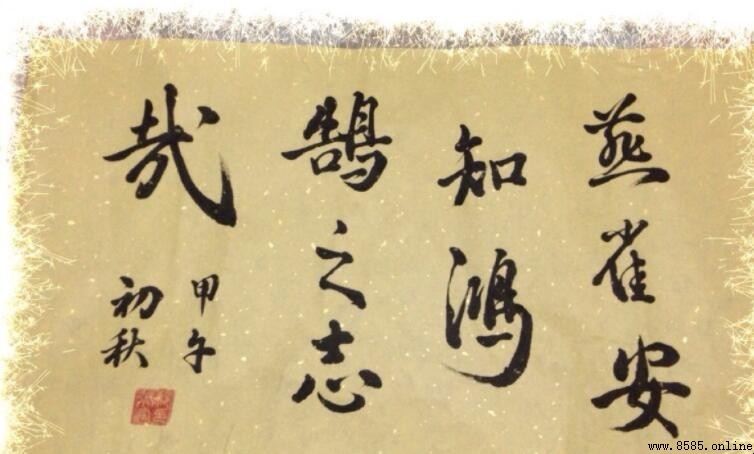 燕雀安
知鴻
鵠之志
哉
甲午
初秋
www.8585.online